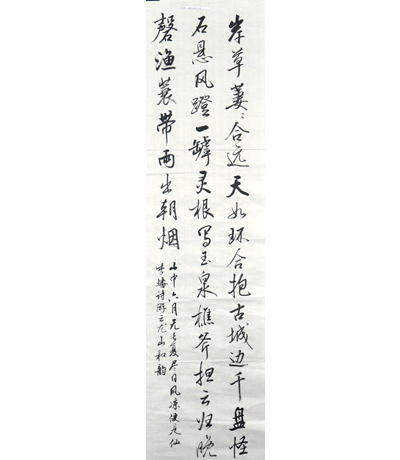 岸草萋萋合远天如环合抱古城边千盘怪
石悬风磴一罅灵根写玉泉樵斧担云归晚
磬渔蓑带雨出朝烟
山中六月元无夏尽日风凉便是仙
李蟠诗游云龙山和韵